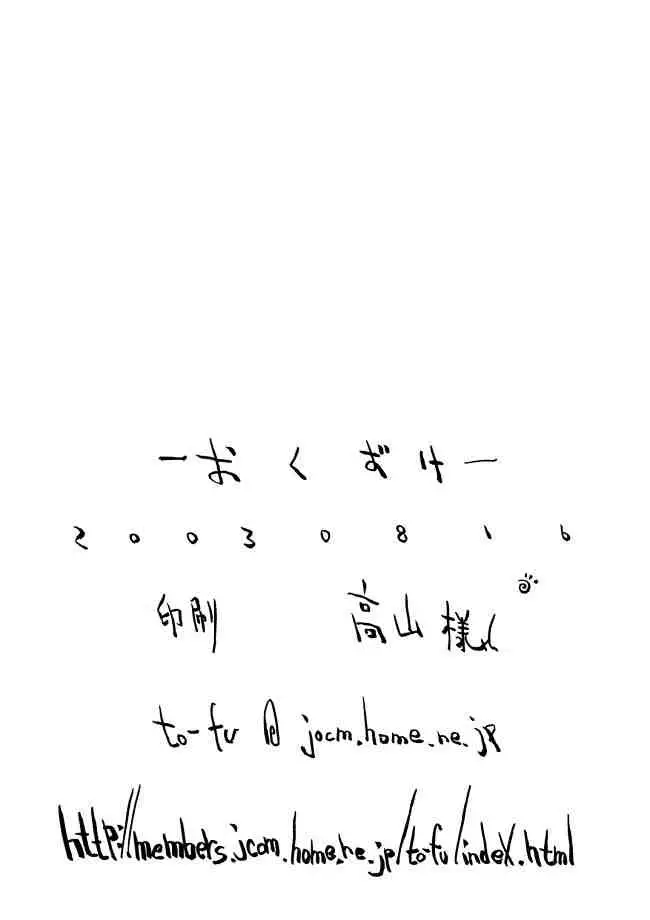 ーおくづけー
2003 0816
印刷 高山様
to-fu@jocm.home.ne.jp
http://members.jcom.home.ne.jp/to-fu/index.html